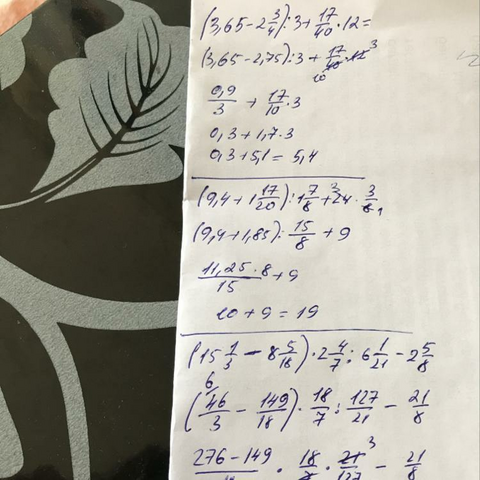 (3,65-2 3/4):3+17/40·12=
(3,65-2,75):3+17/40·12 3
10
0,9/3+17/10·3
0,3+1,7·3
0,3+5,1=5,4
(9,4+1 17/20):1 7/8+24·3/8
(9,4+1,85):15/8+9
11,25·8/15+9
10+9=19
(15 1/3-8 5/18)·2 4/7:6 1/21-2 5/8
6
(46/3-149/18)·18/7:127/21-21/8
276-149/18·18/7·21/127 3-21/8